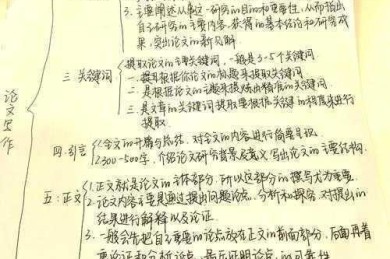 3. 主要阐述从事这一研究的目的和重要性，从而指出
自己研究的主要内容，获得的基本结论和研究成
果，突出论文的新见解.
三、关键词
提取论文的主要关键词，一般是3-5个关键词
一. 提取根据你论文的标题来提取关键词
二. 是根据论文的主题来提炼出精准的关键词
三. 是文章的关键词提取要根据关键词的程度来进行
提取.
论文写作
四. 引言
1.全文的开场与总结，对全文的内容进行简要导议.
2.300-500字，介绍论文研究背景及意义，写出论文的主要结构.
五. 正文
1. 正文就是论文的主体部分，所以这部分的撰写尤为重要
2. 论文内容主要是通过提出问题论点，分析和探究，对提出的
结果进行解释以及论证.
3. 一般会先把自己重要的论点放在正文的前面部分，后面再着
重论证和分析论点，最后证明论点的可靠性